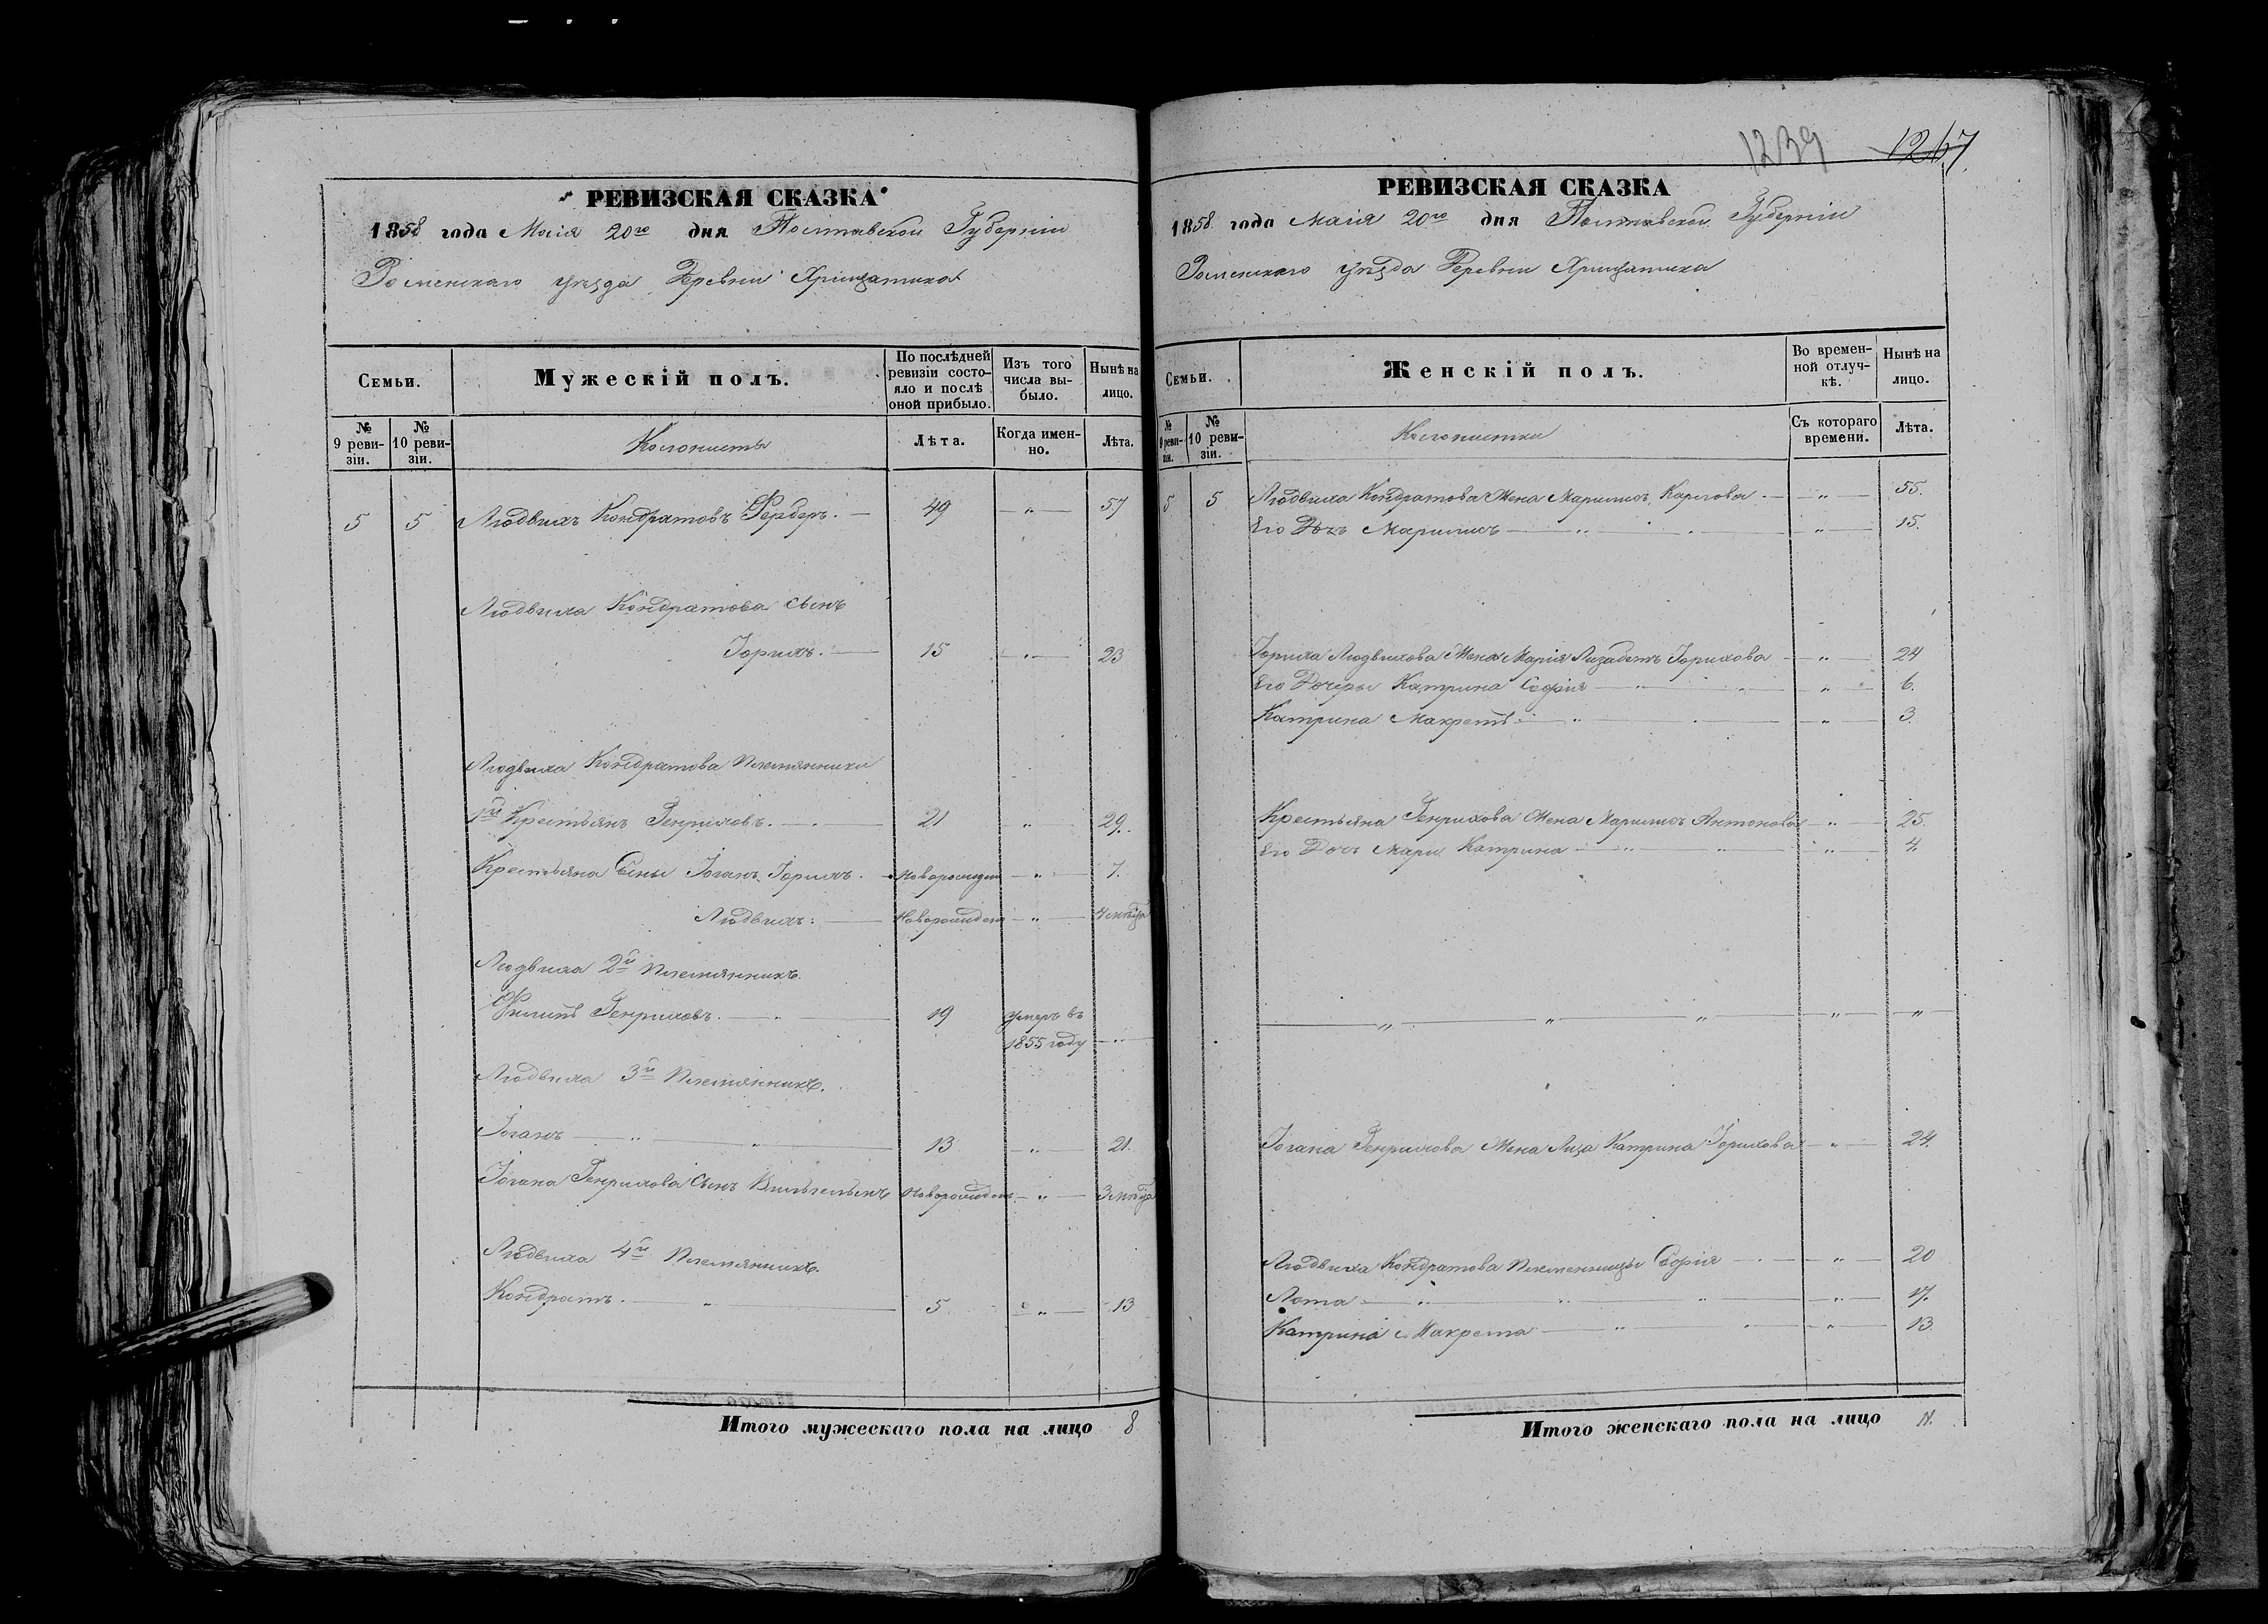 РЕВИЗСКАЯ СКАЗКА
1858 года Маія 20го дня Полтавской Губерніи
Роменскаго уѣзда Деревни Хрищатика
Семьи.
Мужескій полъ.
По послѣдней ревизіи состояло и послѣ оной прибыло.
Изъ того числа выбыло.
Нынѣ на лицо.
№ 9 ревизіи.
№ 10 ревизіи.
Колонисты
Лѣта.
Когда именно.
Лѣта.
5 5 Людвихъ Кондратовъ Ферберъ. — 49 — „ — 57
Людвиха Кондратова сынъ
Іорихъ. — 15 — „ — 23
Людвиха Кондратова племянники
1й Крестьянъ Генриховъ. — 21 „ 29.
Крестьяна Сыны Іоганъ Іорихъ. Новорожден — „ — 7.
Людвихъ: — Новорожден — „ — 4 мѣсяца
Людвиха 2й племянникъ.
Филипъ Генриховъ. — „ — 19 умеръ въ
1855 году — „ —
Людвиха 3й племянникъ.
Іоганъ — „ — „ — 13 — „ — 21.
Іогана Генрихова сынъ Вильгельмъ Новорожден — „ — 3 мѣсяца
Людвиха 4й племянникъ.
Кондратъ. — „ — 5 — „ — 13
Итого мужескаго пола на лицо 8
1239 1267
РЕВИЗСКАЯ СКАЗКА
1858 года Маія 20го дня Полтавской Губерніи
Роменскаго уѣзда Деревни Хрищатика
Семьи.
Женскій полъ.
Во временной отлучкѣ.
Нынѣ на лицо.
№ 9 ревизіи.
№ 10 ревизіи.
Колонистки
Съ котораго времени.
Лѣта.
5 5 Людвиха Кондратова Жена Марилисъ Карлова — „ — 55.
Его Дочь Марилисъ — „ — „ — 15.
Іориха Людвихова Жена Марія Лизабетъ Іорихова — „ — 24
Его Дочеры Катрина Софія — „ — „ — 6.
Катрина Макретъ — „ — „ — 3.
Крестьяна Генрихова Жена Марилисъ Антонова — „ — 25.
Его Дочь Мари Катрина — „ — „ — 4.
— „ — „ — „ — „ — „ —
Іогана Генрихова Жена Лиза Катрина Іорихова — „ — 24.
Людвиха Кондратова племенницы Софія — „ — 20
Лота — „ — „ — „ — 17.
Катрина Макрета — „ — „ — 13.
Итого женскаго пола на лицо 11.